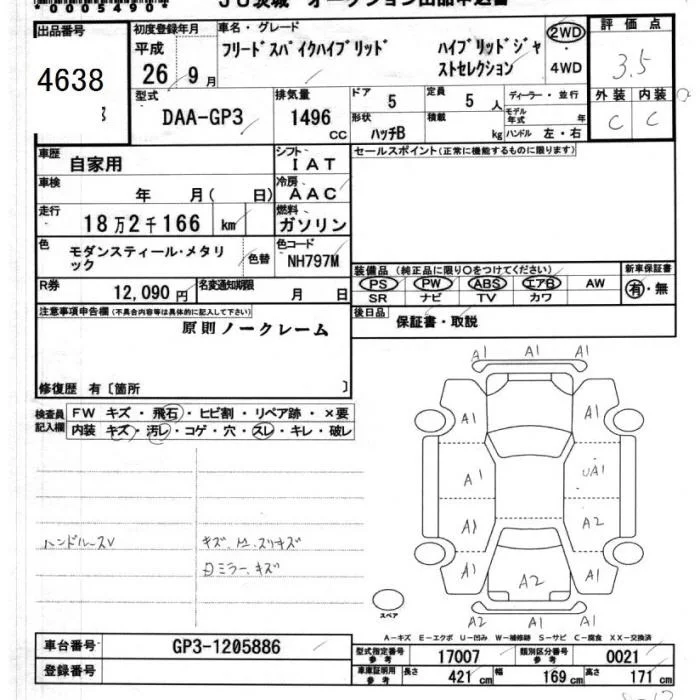 *00005490*
JU茨城 オークション出品申込書
出品番号
4638
初度登録年月
平成
26年 9月
車名・グレード
フリードスパイクハイブリッド ハイブリッドジャストセレクション
2WD
4WD
評価点
3.5
外装 内装
C C
型式
DAA-GP3
排気量
1496 CC
ドア
5
定員
5 人
ディーラー・並行
モデル年式 年
形状
ハッチB
積載 kg
ハンドル 左・右
車歴
自家用
シフト
IAT
セールスポイント(正常に機能するものに限ります)
車検
年 月( 日)
冷房
AAC
走行
18万2千166 km
燃料
ガソリン
色
モダンスティール・メタリック
色替
色コード
NH797M
装備品 (純正品に限り○をつけてください)
PS PW ABS エアB AW
SR ナビ TV カワ
新車保証書
有・無
R券
12,090円
名変通知期限
月 日
後日品
保証書・取説
注意事項申告欄(不具合内容等は具体的に記入して下さい)
原則ノークレーム
修復歴 有〔箇所 〕
検査員記入欄
FW キズ・飛石・ヒビ割・リペア跡・×要
内装 キズ・汚レ・コゲ・穴・スレ・キレ・破レ
A1 A1 A1
A1 A1
A1 UA1
A1 A2
A1 A2 A1
A2 A1 A1
スペア
A-キズ E-エクボ U-凹み W-補修跡 S-サビ C-腐食 XX-交換済
車台番号
GP3-1205886
登録番号
型式指定番号 参考
17007
類別区分番号 参考
0021
車庫証明用 参考
長さ 421 cm
幅 169 cm
高さ 171 cm